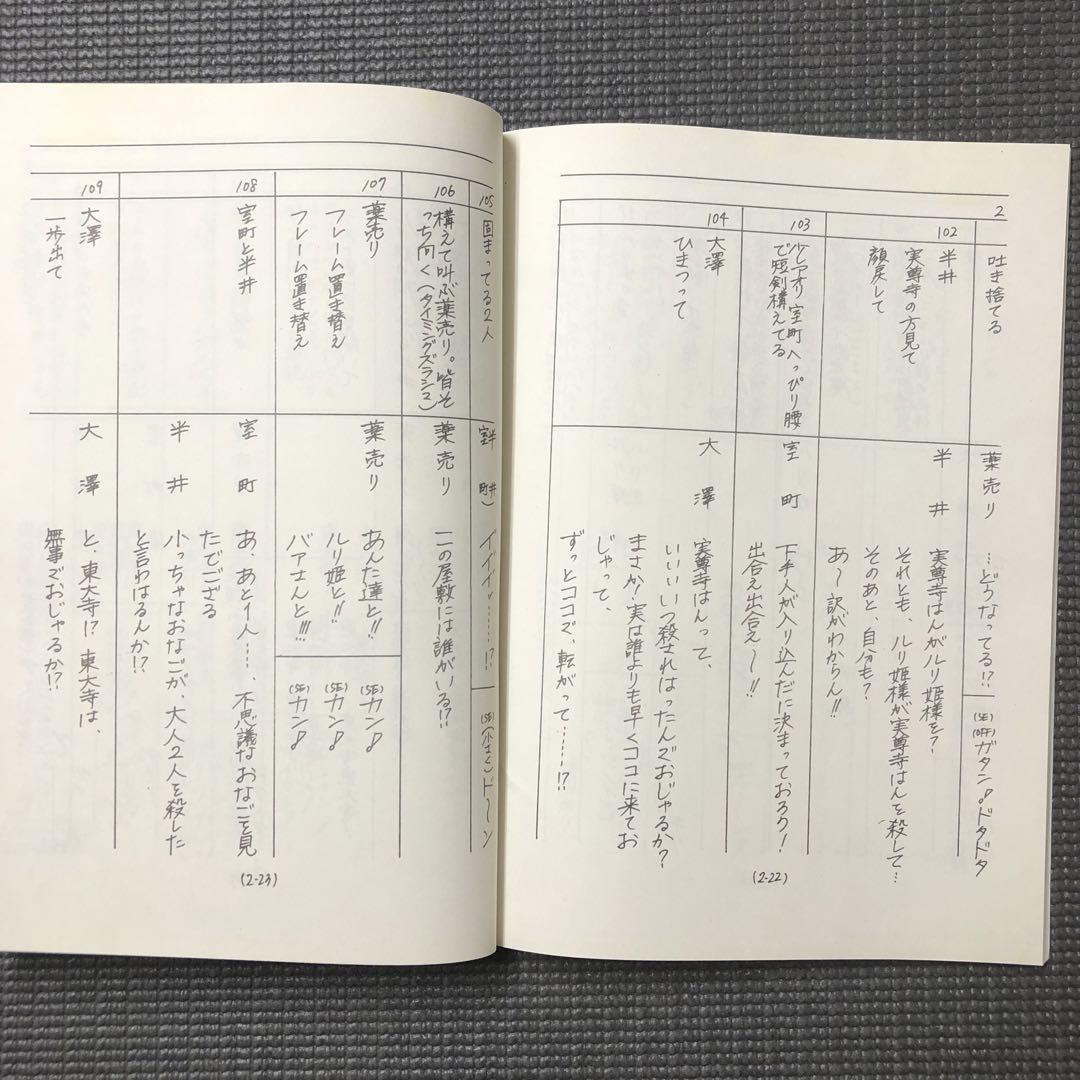 2
吐き捨てる
薬売り
…どうなってる!?
(SE)
(OFF)
ガタン♪ドタドタ
102
半井
実尊寺の方見て
顔戻して
半井
実尊寺はんがルリ姫様を?
それとも、ルリ姫様が実尊寺はんを殺して…
そのあと、自分も?
あ〜訳がわからん!!
103
少しアオリ 室町へっぴり腰
で短剣構えてる
室町
下手人が入り込んだに決まっておろう!
出合え出合え〜!!
104
大澤
ひきつって
大澤
実尊寺はんって、
いいいいつ殺されはったんでおじゃるか?
まさか!実は誰よりも早くココに来てお
じゃって、
ずっとココで、転がって……!?
(2-22)
105
固まってる2人
半井
室町)
イイイイ……!?
(SE)(小さく)ド〜ン
106
構えて叫ぶ薬売り。皆そ
っち向く(タイミングズラシコ)
薬売り
この屋敷には誰がいる!?
107
薬売り
フレーム置き替え
フレーム置き替え
薬売り
あんた達と!!
ルリ姫と!!
バアさんと!!!
(SE)カン♪
(SE)カン♪
(SE)カン♪
108
室町と半井
室町
あ、あと1人…、不思議なおなごを見
たでござる
半井
小っちゃなおなごが、大人2人を殺した
と言わはるんか!?
109
大澤
一歩出て
大澤
と、東大寺!?東大寺は、
無事でおじゃるか!?
(2-23)